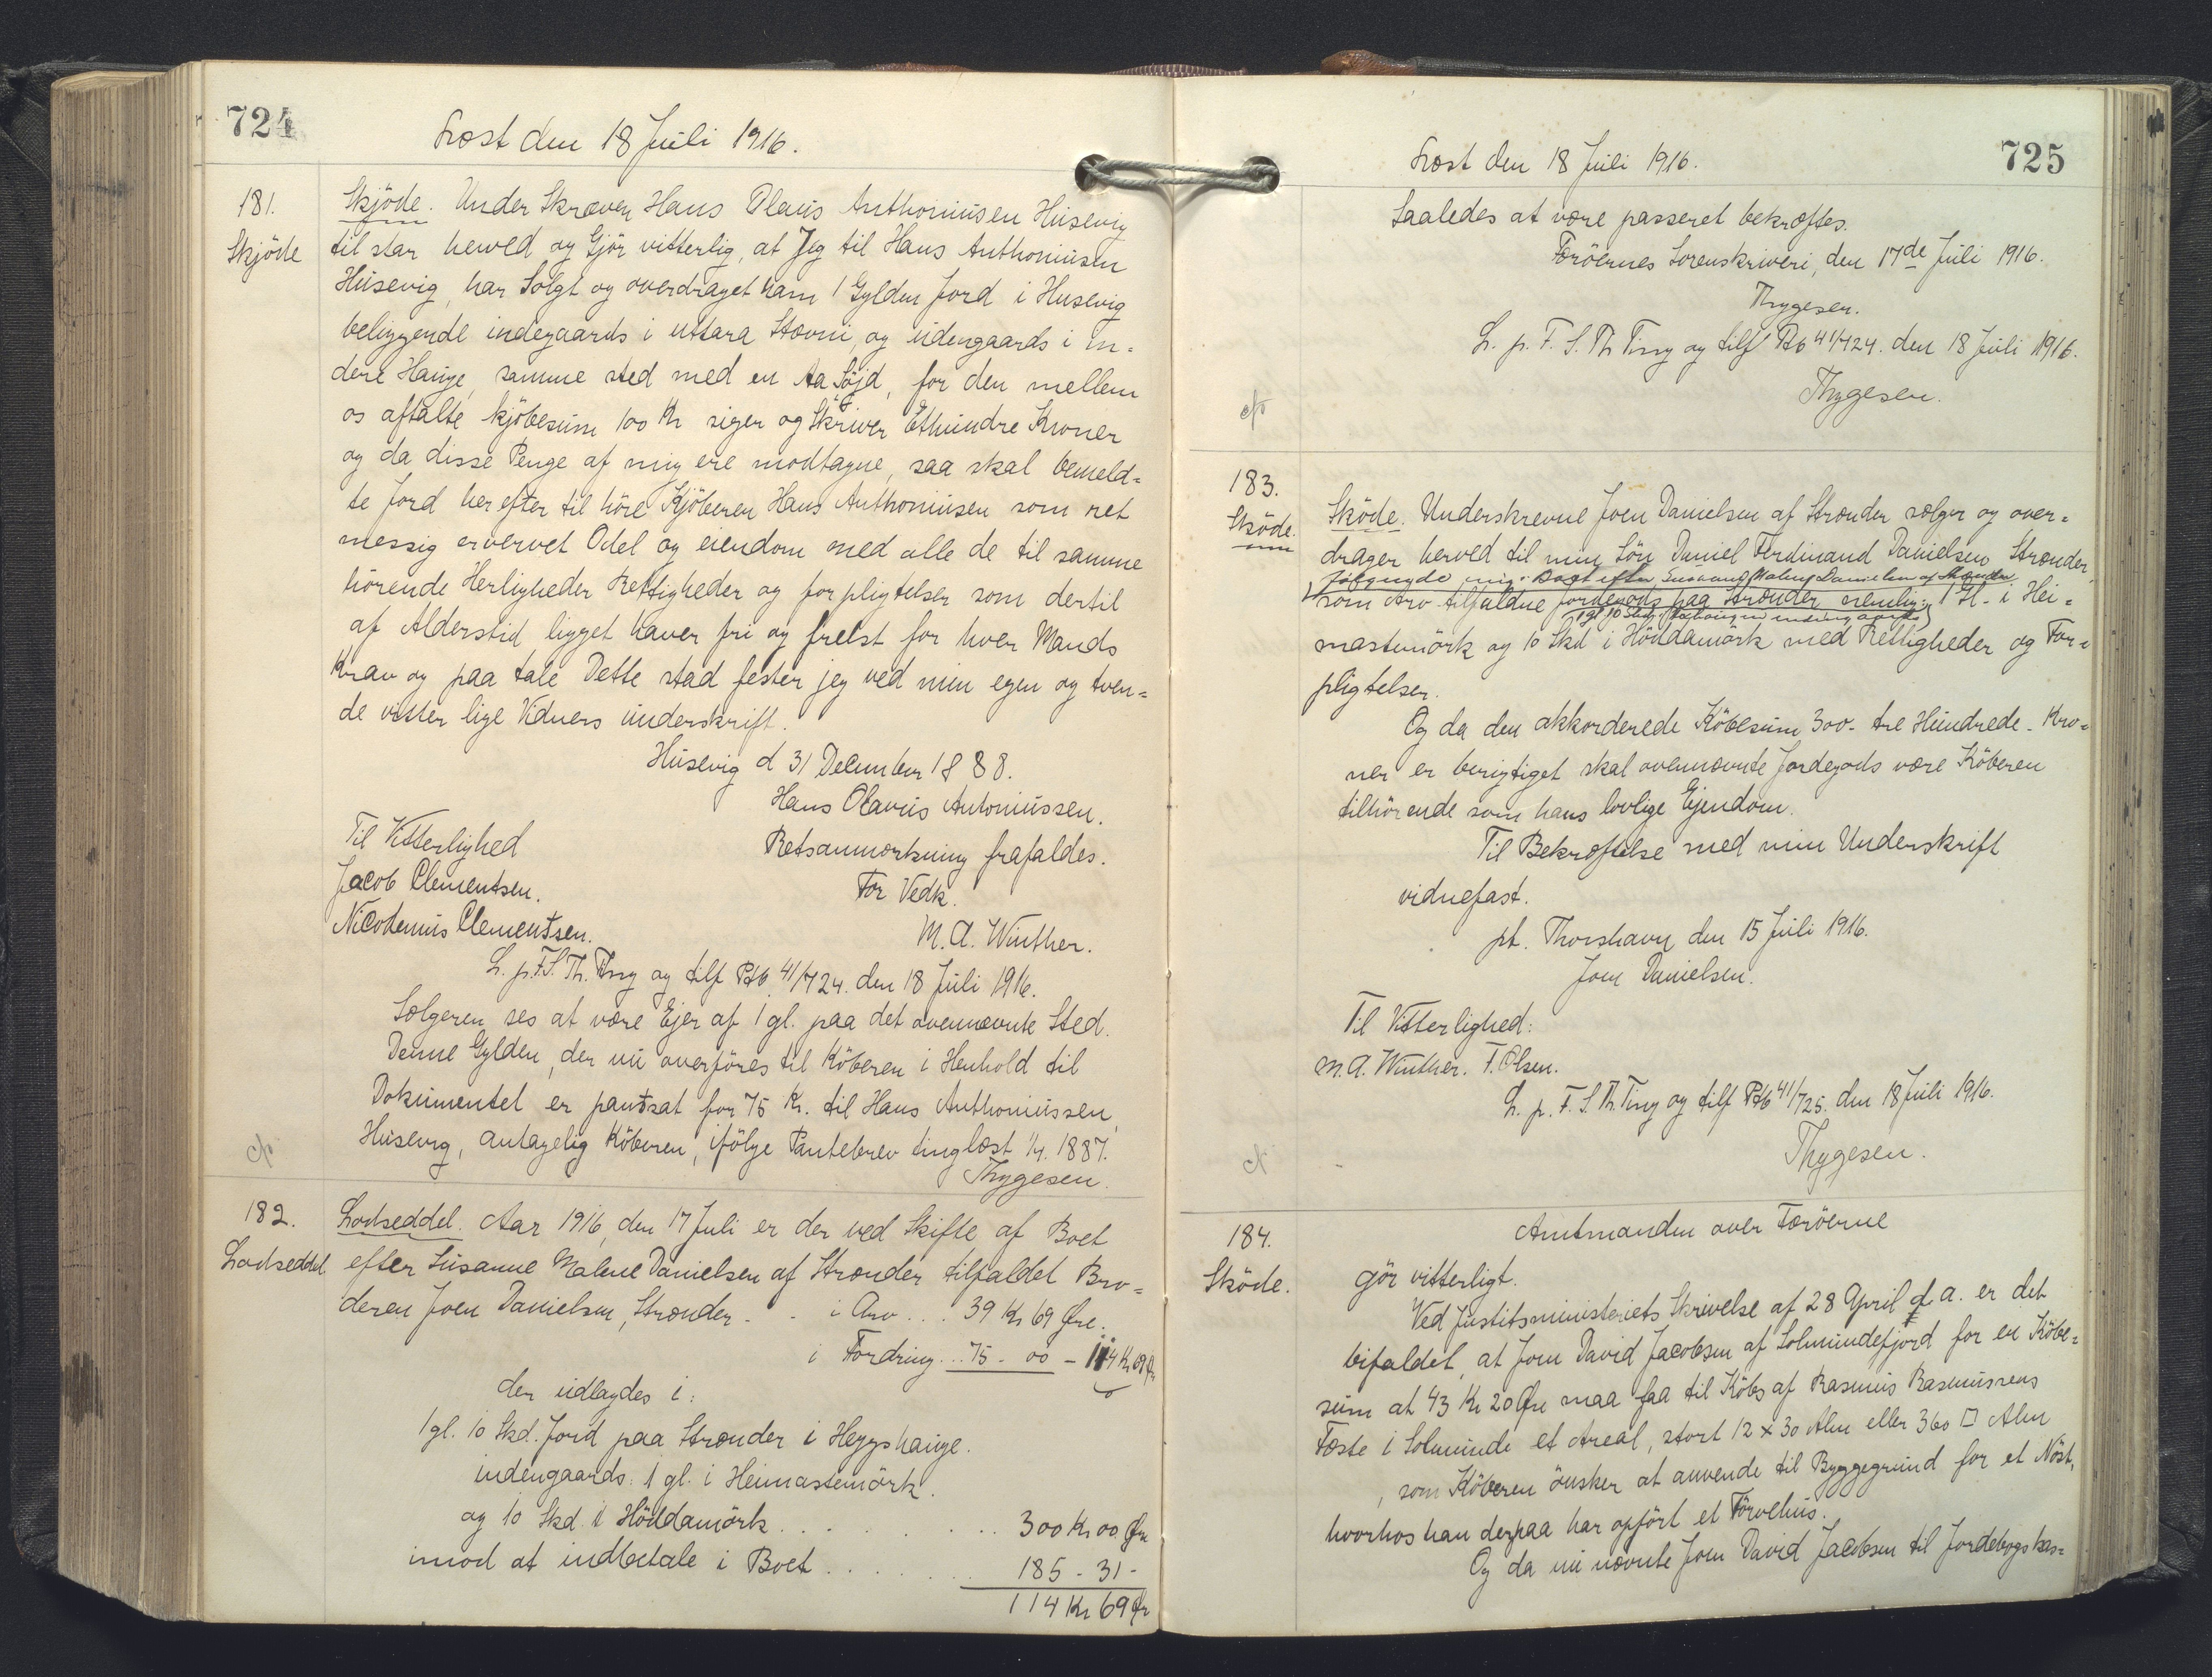 724
Læst den 18 Juli 1916.
181.
Skjöde
Skjöde. Under Skreven Hans Olaus Anthoniusen Husevig
til star herved og Gjör vitterlig, at Jeg til Hans Anthoniusen
Husevig, har Solgt og overdraget ham 1 Gylden Jord i Husevig
beliggende indegaards i uttara Stovni, og udengaards i in-
dere Hauge, samme sted med en Aa Söjd, for den mellem
os aftalte kjöbesum 100 Kr siger og Skriver Ethundre Kroner
og da disse Penge af mig ere modtagne, saa skal bemeld-
te Jord her efter til höre Kjöberen Hans Anthoniusen som ret
messig ervervet Odel og eiendom med alle de til samme
hörende Herligheder Rettigheder og forpligtelser som dertil
af Alderstid ligget haver fri og frelst for hver Mands
Krav og paa tale Dette stad fester jeg ved min egen og tven-
de vitter lige Vidners underskrift.
Husevig d 31 December 1888.
Hans Olavus Antoniussen.
Til Vitterlighed
Retsanmærkning frafaldes.
Jacob Clementsen.
For Vedk.
Nicodemus Clementsen.
M. A. Winther.
L. p. F. S. Th. Ting og tilf Ptb 41/724. den 18 Juli 1916.
Sælgeren ses at være Ejer af 1 gl. paa det ovennævnte Sted.
Denne Gylden, der nu overföres til Köberen i Henhold til
Dokumentet er pantsat for 75 Kr. til Hans Anthoniussen,
Husevig, antagelig Köberen, ifölge Pantebrev tinglæst 1/4. 1887.
Thygesen.
182.
Lodseddel
Lodseddel. Aar 1916, den 17 Juli er der ved Skifte af Boet
efter Susanne Malene Danielsen af Strænder tilfaldet Bro-
deren Joen Danielsen, Strænder - . i Arv ... 39 Kr 69 Øre.
i Fordring ... 75 - 00 - 114 Kr 69 Ør
der udlagdes i:
1 gl. 10 Skd. Jord paa Strænder i Heygshauge.
indengaards: 1 gl. i Heimastemörk.
og 10 Skd. i Höddamörk . . . . . . . . . 300 Kr 00 Øre
imod at indbetale i Boet . . . . . . . 185 - 31 -
114 Kr 69 Ør
725
Læst den 18 Juli 1916.
Saaledes at være passeret bekræftes.
Færöernes Sorenskriveri, den 17de Juli 1916.
Thygesen.
L. p. F. S. Th Ting og tilf Ptb 41/724. den 18 Juli 1916.
Thygesen.
183.
Sköde.
Sköde. Underskrevne Joen Danielsen af Strænder sælger og over-
drager herved til min Sön Daniel Ferdinand Danielsen Strænder,
fölgende mig i Boet efter Susanne Malene Danielsen af Strænder
som Arv tilfaldne Jordegods paa Strænder nemlig: 1 Gl. i Hei-
mastemörk og 10 Skd i Höddamörk med Rettigheder og For-
pligtelser.
Og da den akkorderede Köbesum 300- tre Hundrede - Kro-
ner er berigtiget skal ovennævnte Jordegods være Köberen
tilhörende som hans lovlige Ejendom.
Til Bekræftelse med min Underskrift
vidnefast.
pt. Thorshavn den 15 Juli 1916.
Joen Danielsen.
Til Vitterlighed:
M. A. Winther. F. Olsen.
L. p. F. S. Th. Ting og tilf Ptb 41/725. den 18 Juli 1916.
Thygesen.
184.
Sköde.
Amtmanden over Færöerne
gör vitterligt.
Ved Justitsministeriets Skrivelse af 28 April d. A. er det
bifaldet, at Joen David Jacobsen af Solmundefjord for en Köbe-
sum at 43 Kr 20 Øre maa faa til Köbs af Rasmus Rasmussens
Fæste i Solmunde et Areal, stort 12 x 30 Alen eller 360 □ Alen
, som Köberen önsker at anvende til Byggegrund for et Nöst,
hvorhos han derpaa har opfört et Törvehus.
Og da nu nævnte Joen David Jacobsen til Jordebogskas-